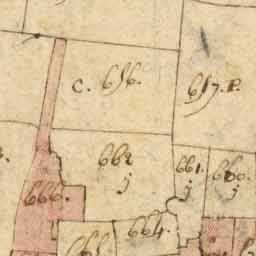 C. 656.
657. P.
662
j
661.
j
660.
j
666.
664.